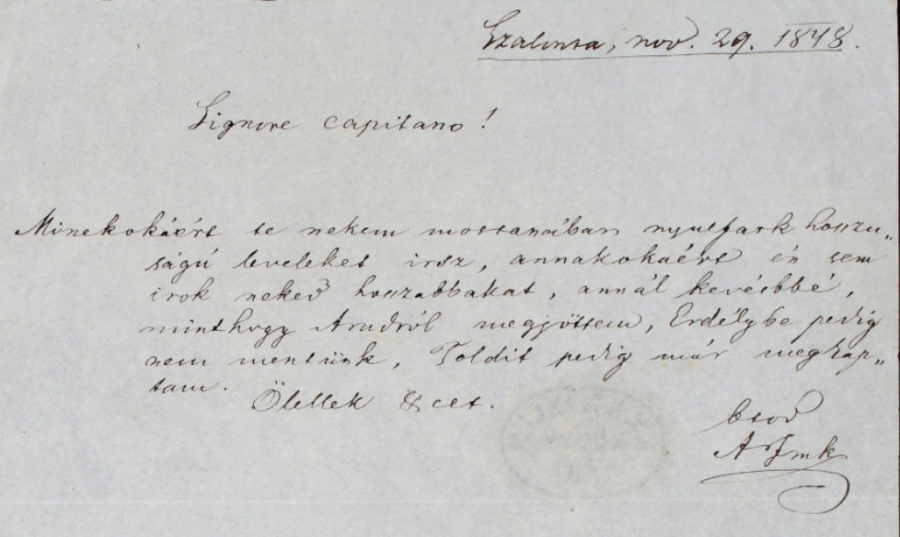 Szalonta, nov. 29. 1848.
Signore capitano!
Minekokáért te nekem mostanában nyulfark hoszu„
ságú leveleket irsz, annakokáért én sem
irok neked hoszabbakat, annál kevésbbé,
minthogy Aradról megjöttem, Erdélybe pedig
nem mentünk. Toldit pedig már megkap„
tam.
Ölellek &cet.
btod
A